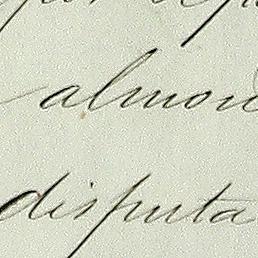 almon
disputa